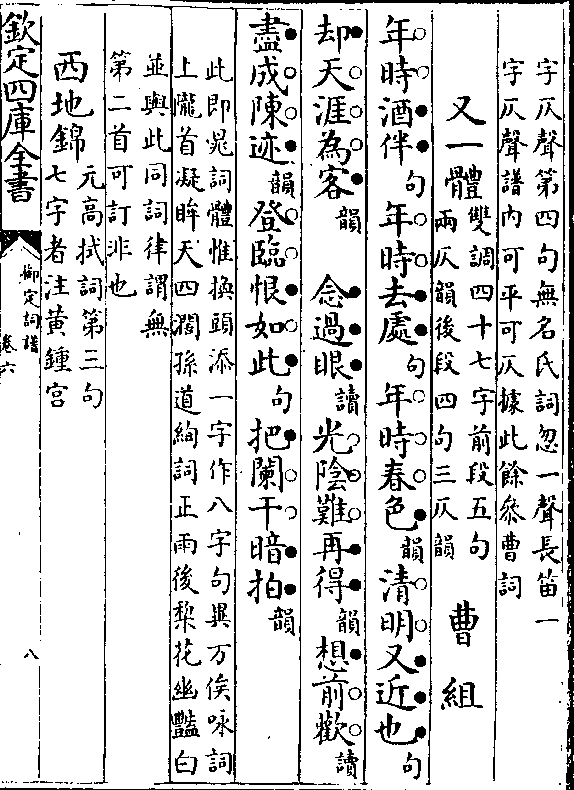 字仄聲第四句無名氏詞忽一聲長笛一
字仄聲譜內可平可仄據此餘叅曹詞
又一體雙調四十七字前段五句
兩仄韻後段四句三仄韻 曹組
年時酒伴句年時去處句年時春色韻清明又近也句
却天涯為客韻 念過眼讀光陰難再得韻想前歡讀
盡成陳迹韻登臨恨如此句把闌干暗拍韻
此即晁詞體惟換頭添一字作八字句與万俟咏詞
上隴首凝眸天四濶孫道絢詞正雨後棃花幽豔白
並與此同詞律謂無
第二首可訂非也
西地錦元高拭詞第三句
七字者注黄鍾宫
欽定四庫全書
御定詞譜
卷六
八